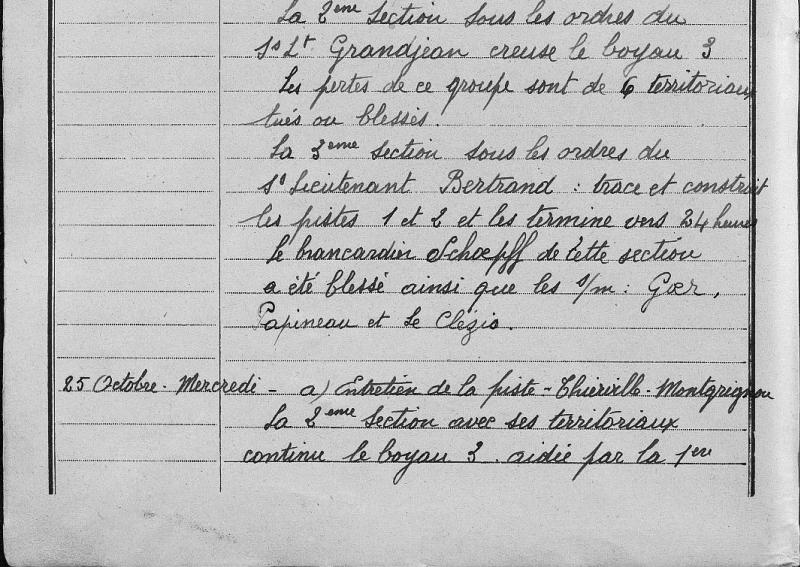 La 2eme Section sous les ordres du
Ss Lt Grandjean creuse le boyau 3
Les pertes de ce groupe sont de 6 territoriaux
tués ou blessés.
La 3eme Section sous les ordres du
Ss Lieutenant Bertrand : trace et construit
les pistes 1 et 2 et les termine vers 24 heures
Le brancardier Schoepff de cette section
a été blessé ainsi que les s/m : Gœr,
Papineau et Le Clézio.
25 Octobre - Mercredi - a) Entretien de la piste - Thierville - Montgrignon
La 2eme Section avec ses territoriaux
continue le boyau 3. aidée par la 1ere